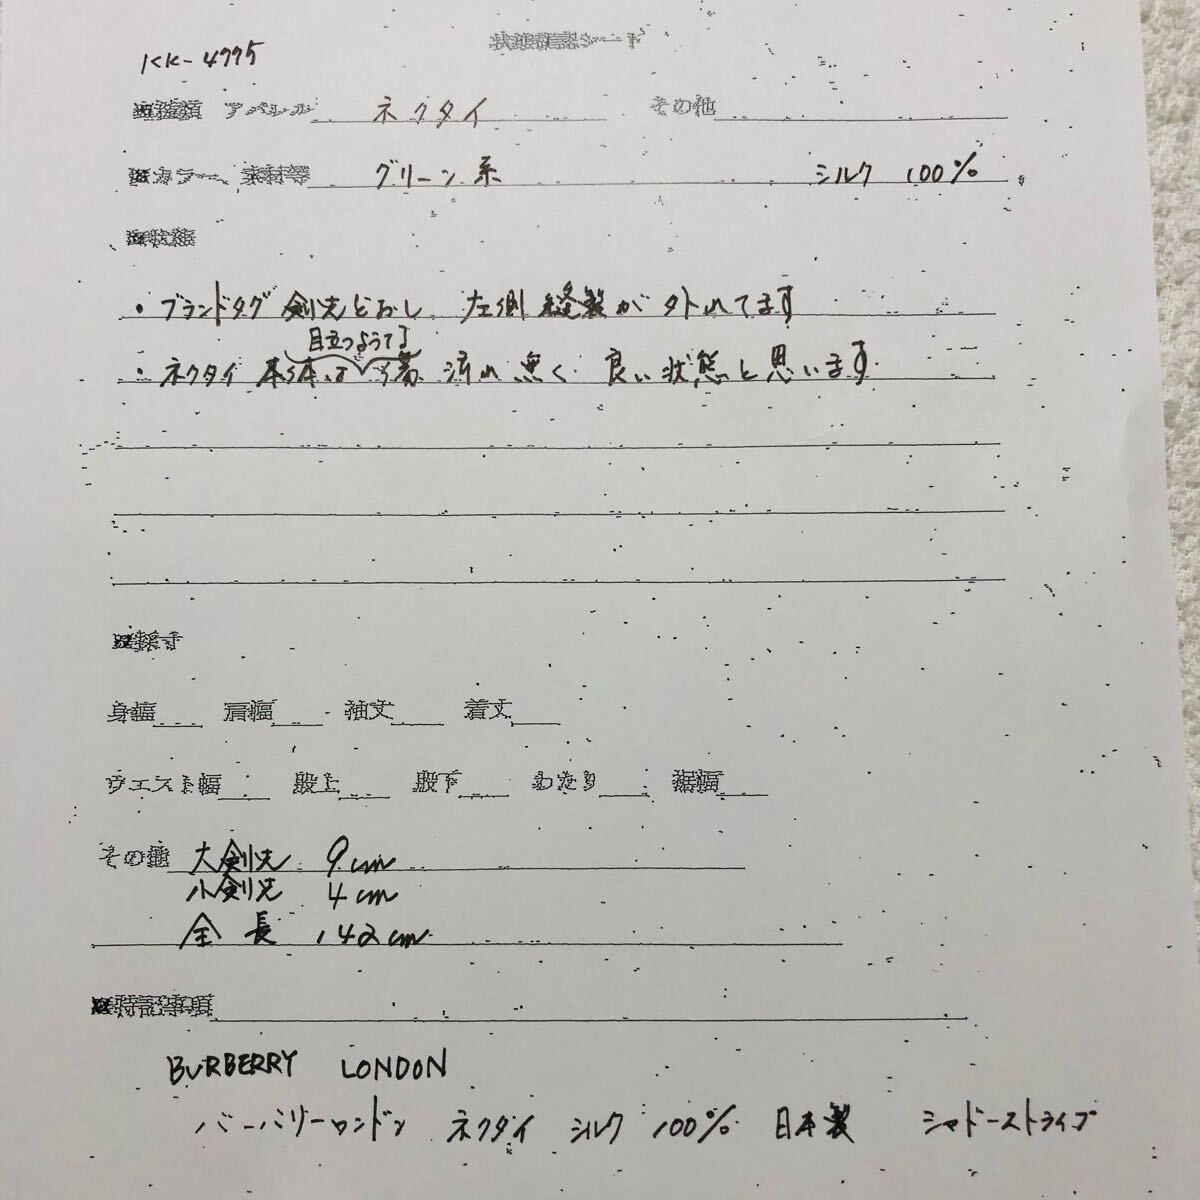 状態確認シート
KK-4775
■種類 アパレル ネクタイ その他
■カラー、素材等 グリーン系 シルク 100%
■状態
・ブランドタグ 剣先どおし 左側 縫製が外れてます
目立つような
・ネクタイ 本体は 傷 汚れ 無く 良い状態と思います
■採寸
身幅 肩幅 袖丈 着丈
ウエスト幅 股上 股下 わたり 裾幅
その他 大剣先 9cm
小剣先 4cm
全長 142cm
■特記事項
BURBERRY LONDON
バーバリーロンドン ネクタイ シルク 100% 日本製 シャドーストライプ